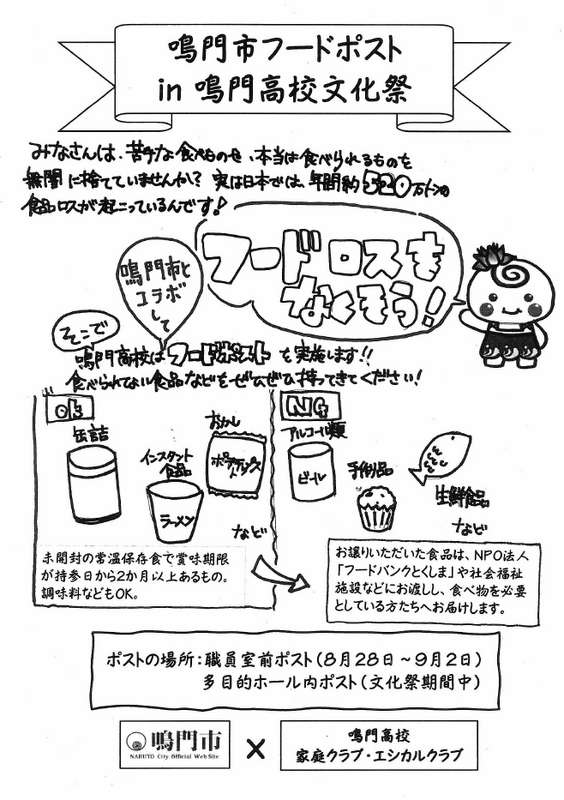 鳴門市フードポスト
in 鳴門高校文化祭
みなさんは、苦手な食べものせ、本当は食べられるものを
無闇に捨てていませんか? 実は日本では、年間約520万トンの
食品ロスが起こっているんです!
フードロスを
なくそう!
鳴門市と
コラボ
して
そこで
鳴門高校はフードポストを実施します!!
食べられてない食品などをぜひぜひ持ってきてください!
OK
缶詰
インスタント
食品
ラーメン
おかし
ポテトチップス
など
未開封の常温保存食で賞味期限
が持参日から2か月以上あるもの。
調味料などもOK。
NG
アルコール類
ビール
手作り品
生鮮食品
など
お譲りいただいた食品は、NPO法人
「フードバンクとくしま」や社会福祉
施設などにお渡しし、食べ物を必要
としている方たちへお届けします。
ポストの場所:職員室前ポスト(8月28日~9月2日)
多目的ホール内ポスト(文化祭期間中)
鳴門市
NARUTO City Official Web Site
×
鳴門高校
家庭クラブ・エシカルクラブ